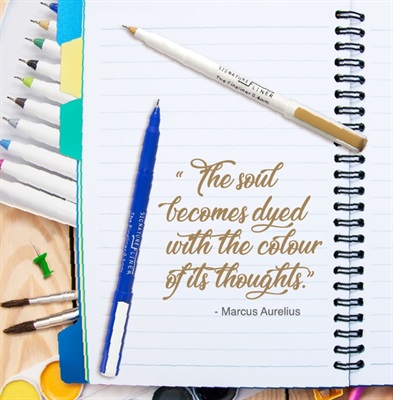 SIGNATURE LINER
The Fineliner 0.4mm
SIGNATURE LINER
“ The soul
becomes dyed
with the colour
of its thoughts.”
- Marcus Aurelius